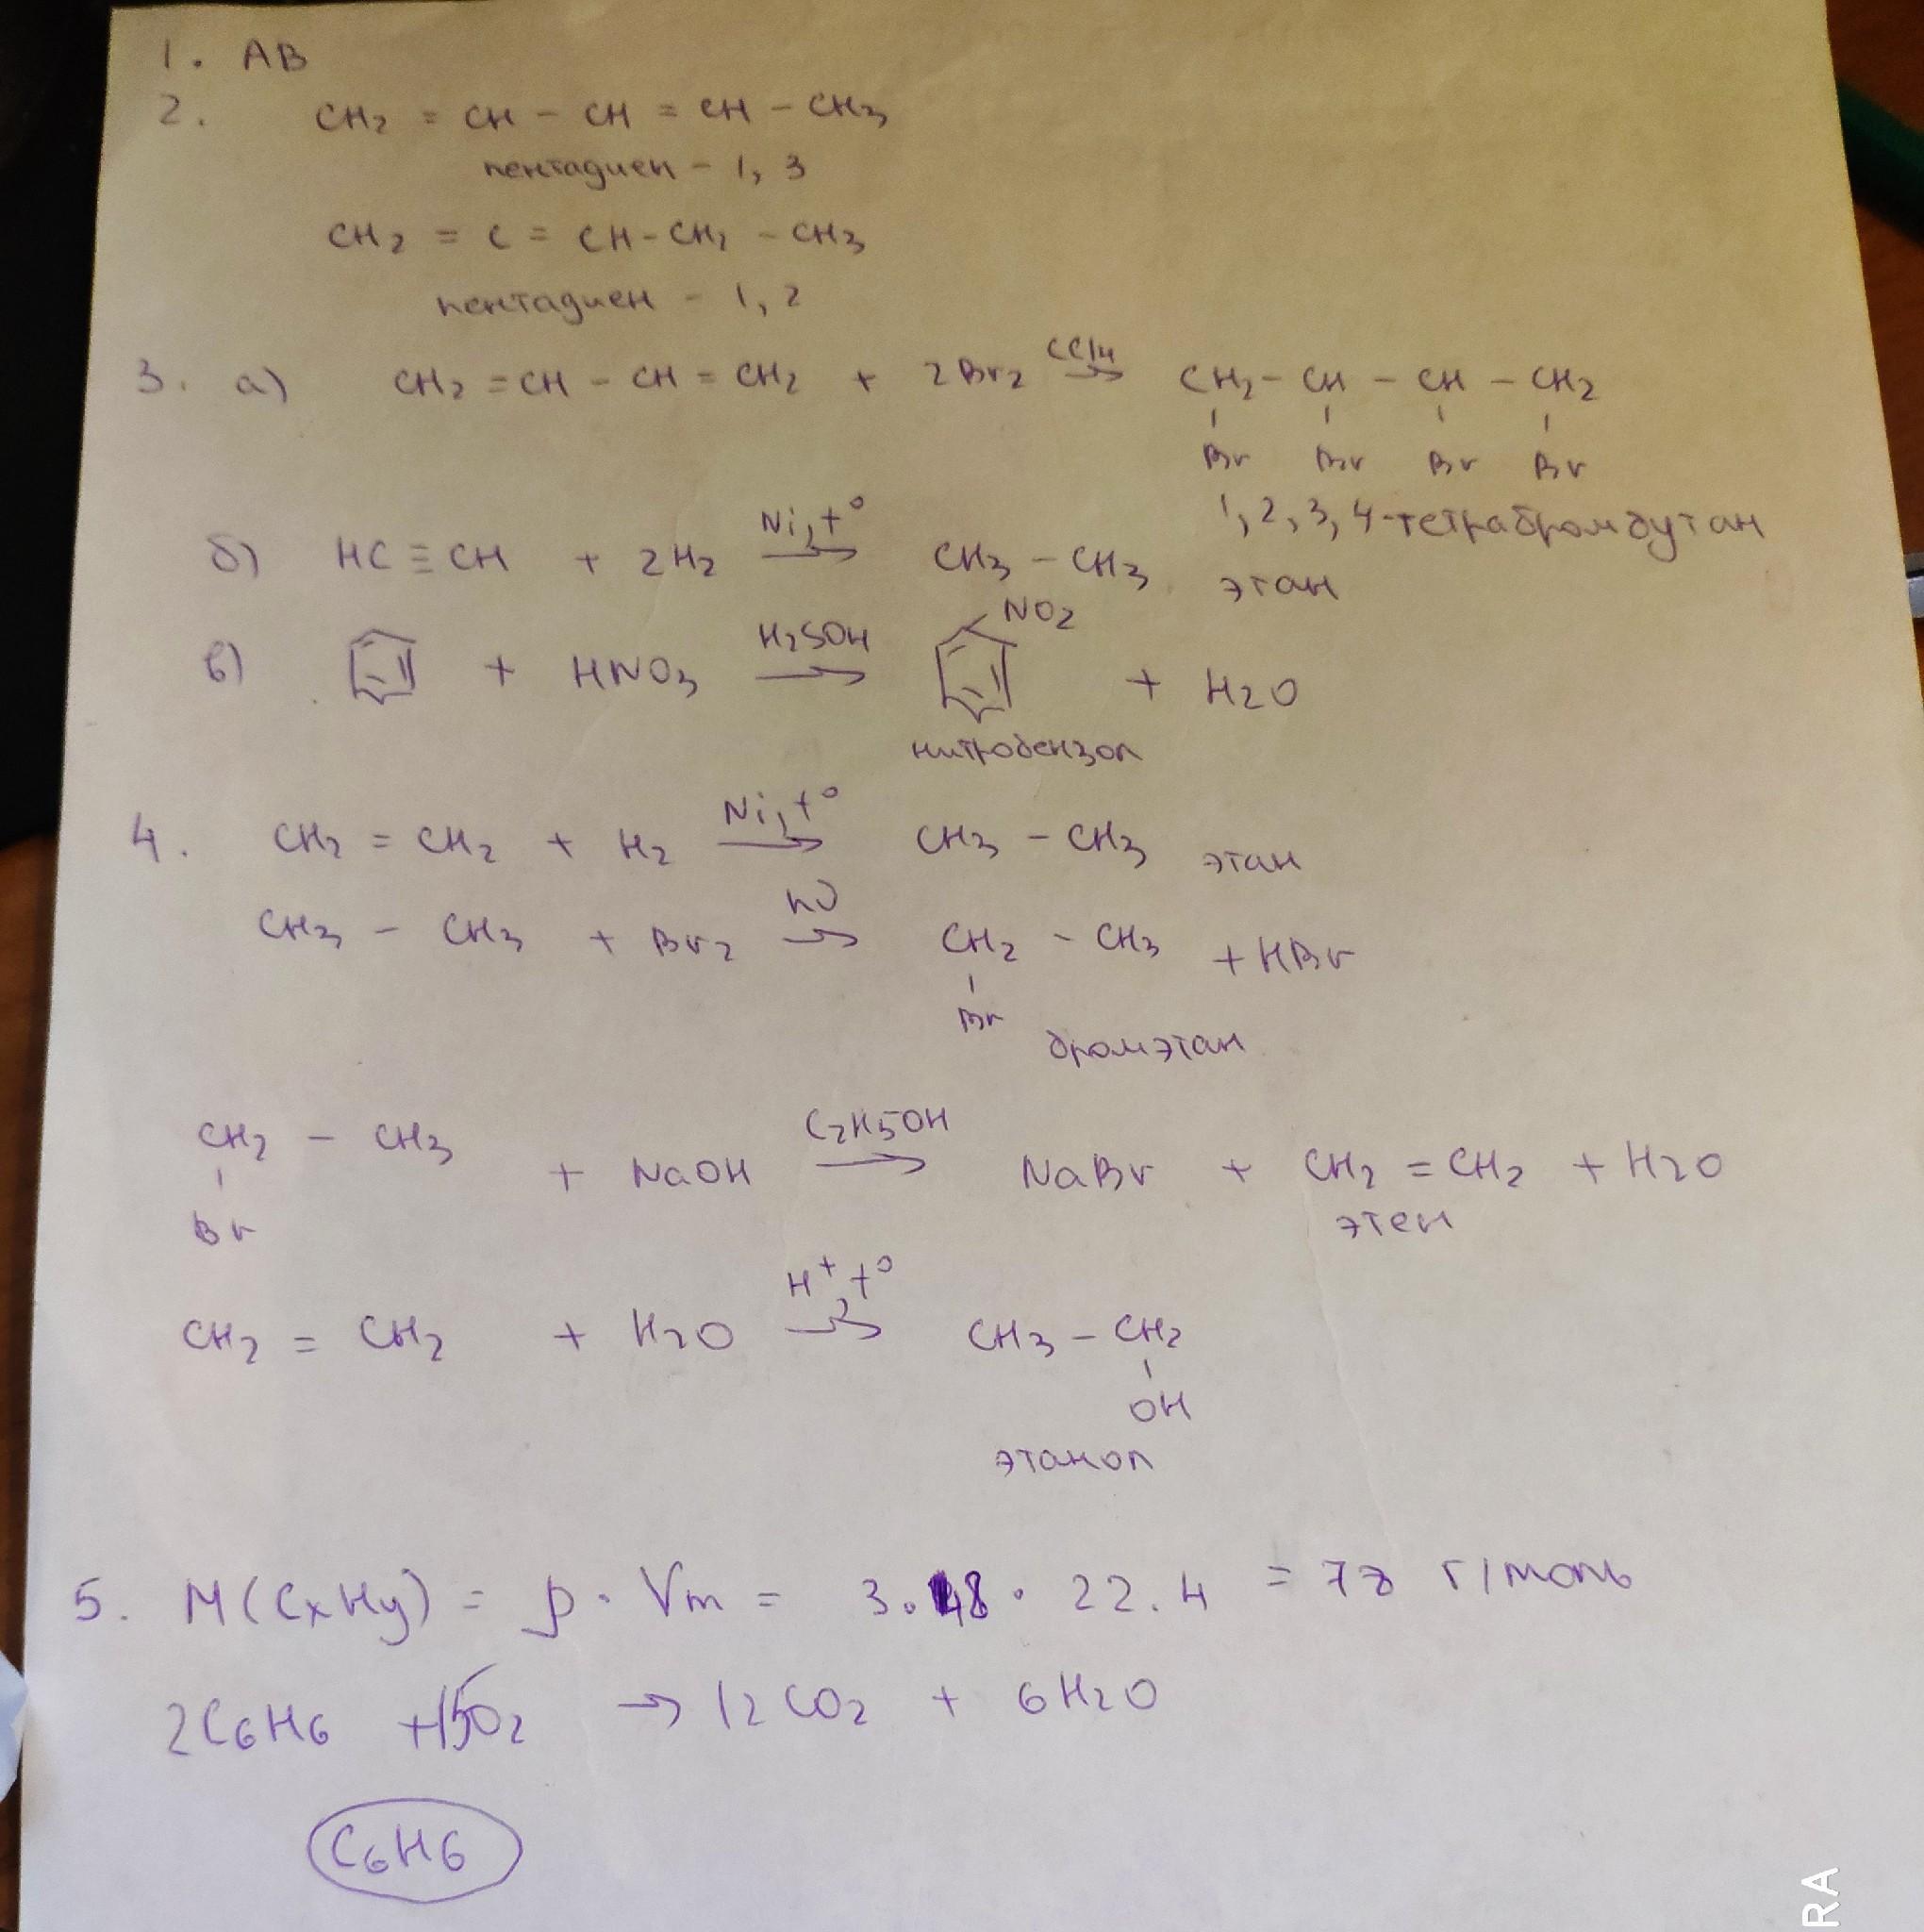 1. АВ
2. CH2 = CH - CH = CH - CH3
пентадиен - 1, 3
CH2 = C = CH - CH2 - CH3
пентадиен - 1, 2
3. а) CH2 = CH - CH = CH2 + 2Br2 CCl4 → CH2 - CH - CH - CH2
Br Br Br Br
1, 2, 3, 4-тетрабромбутан
б) HC ≡ CH + 2H2 Ni, t° → CH3 - CH3 этан
в) + HNO3 H2SO4 → NO2 + H2O
нитробензол
4. CH2 = CH2 + H2 Ni, t° → CH3 - CH3 этан
CH3 - CH3 + Br2 hν → CH2 - CH3 + HBr
Br
бромэтан
CH2 - CH3 + NaOH C2H5OH → NaBr + CH2 = CH2 + H2O
Br
этен
CH2 = CH2 + H2O H+, t° → CH3 - CH2
OH
этанол
5. M(CxHy) = ρ · Vm = 3.48 · 22.4 = 78 г/моль
2C6H6 + 15O2 → 12CO2 + 6H2O
C6H6
RA